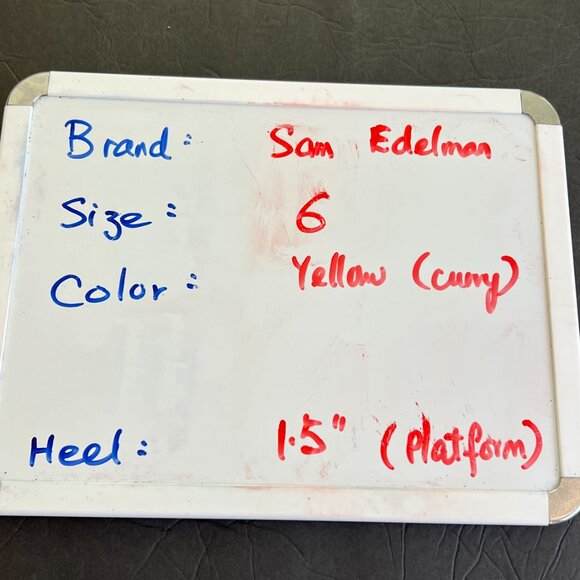 Brand: Sam Edelman
Size: 6
Color: Yellow (curry)
Heel: 1.5" (Platform)